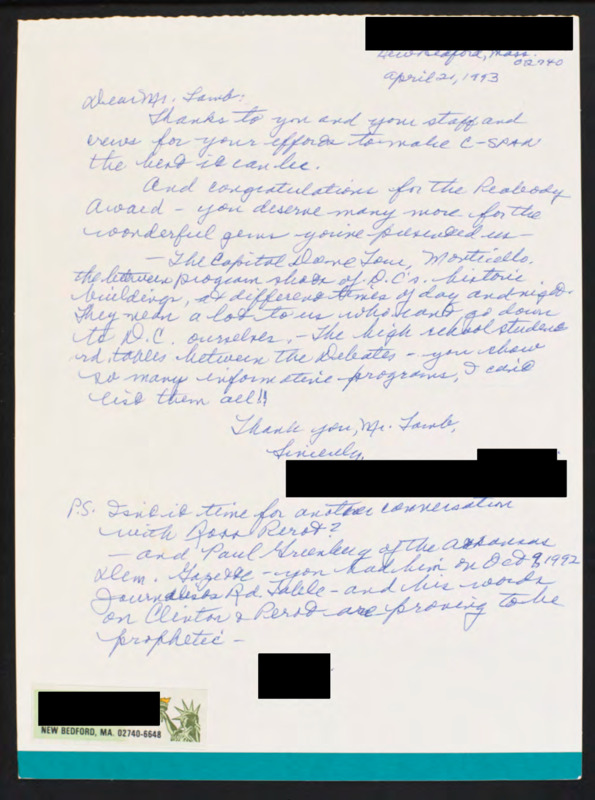 New Bedford, Mass.
02740
April 21, 1993
Dear Mr. Lamb:
Thanks to you and your staff and
crews for your efforts to make C-SPAN
the best it can be.
And congratulations for the Peabody
Award - you deserve many more for the
wonderful gems you've presented us -
- The Capitol Dome Tour, Monticello,
the between program shots of D.C.'s historic
buildings, at different times of day and night.
They mean a lot to us who can't go down
to D.C. ourselves. - The high school student
rd. tables between the Debates - you show
so many informative programs, I can't
list them all!!
Thank you, Mr. Lamb,
Sincerely,
P.S. Isn't it time for another conversation
with Ross Perot?
- and Paul Greenberg of the Arkansas
Dem. Gazette - you had him on Oct 9, 1992
Journalists Rd. Table - and his words
on Clinton & Perot are proving to be
prophetic -
NEW BEDFORD, MA. 02740-6648